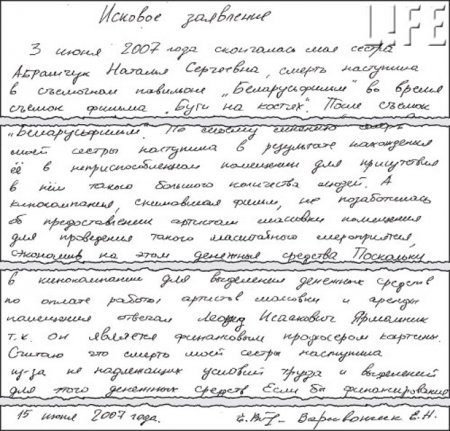 LIFE
Исковое заявление
3 июня 2007 года скончалась моя сестра
Абрамчук Наталья Сергеевна, смерть наступила
в съёмочном павильоне „Беларусьфильм" во время
съёмок фильма „Буги на костях". После съёмок
„Беларусьфильм". По моему мнению смерть
моей сестры наступила в результате нахождения
её в неприспособленном помещении для присутствия
в нём такого большого количества людей. А
кинокомпания, снимавшая фильм, не позаботилась
об предоставлении артистам массовки помещения
для проведения такого масштабного мероприятия,
экономив на этом денежные средства Поскольку
в кинокомпании для выделения денежных средств
по оплате работы артистов массовки и аренды
помещения отвечал Леонид Исаакович Ярмольник
т.к. он является финансовым продюсером картины.
Считаю что смерть моей сестры наступила
из-за не надлежащих условий труда и выделений
для этого денежных средств Если бы финансирование
15 июня 2007 года. Е.Н.